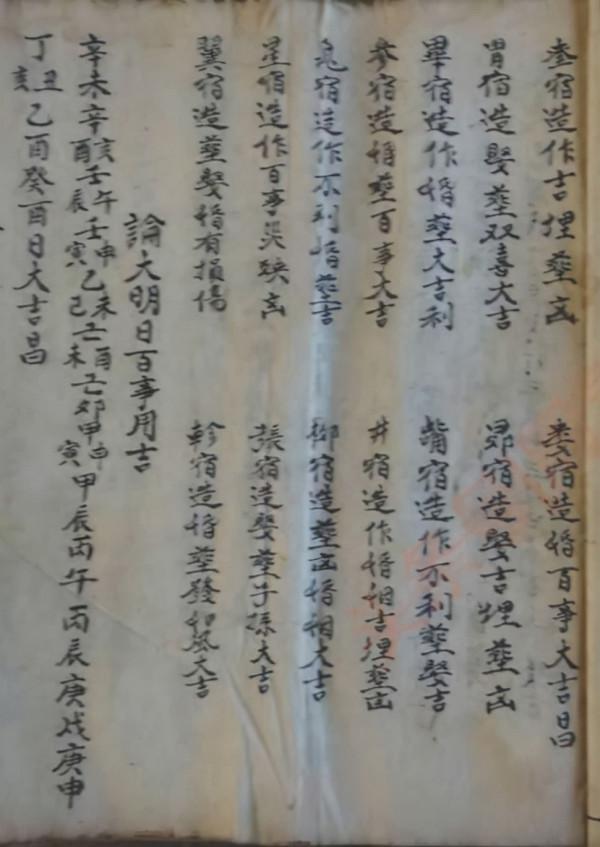 奎宿造作吉埋葬凶　娄宿造婚百事大吉昌
胃宿造娶葬双喜大吉　昴宿造娶吉埋葬凶
畢宿造作婚葬大吉利　觜宿造作不利葬娶吉
参宿造婚葬百事大吉　井宿造作婚姻吉埋葬凶
鬼宿造作不利婚葬吉　柳宿造葬凶婚姻大吉
星宿造作百事災殃凶　張宿造娶葬子孫大吉
翼宿造葬娶婚有損傷　軫宿造婚葬發和風大吉
論大明日百事用吉
辛未辛亥酉壬午辰壬申寅乙未巳己酉未己卯甲申寅甲辰丙午丙辰庚戌庚申
丁丑亥乙酉癸酉日大吉昌